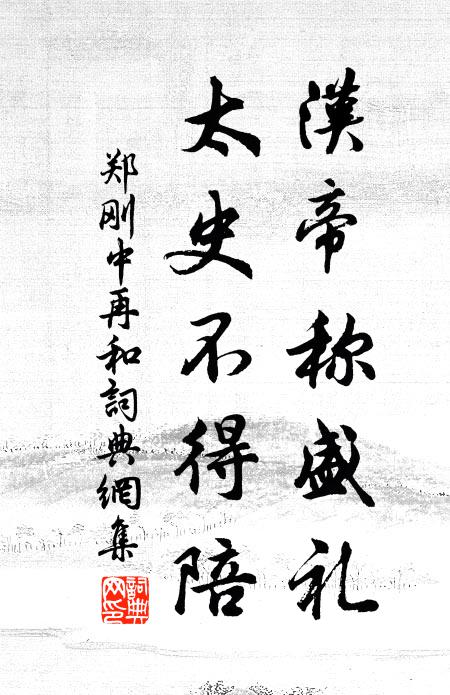 漢帝称盛礼
太史不得陪
郑刚中再和詞典網集
詞典网印